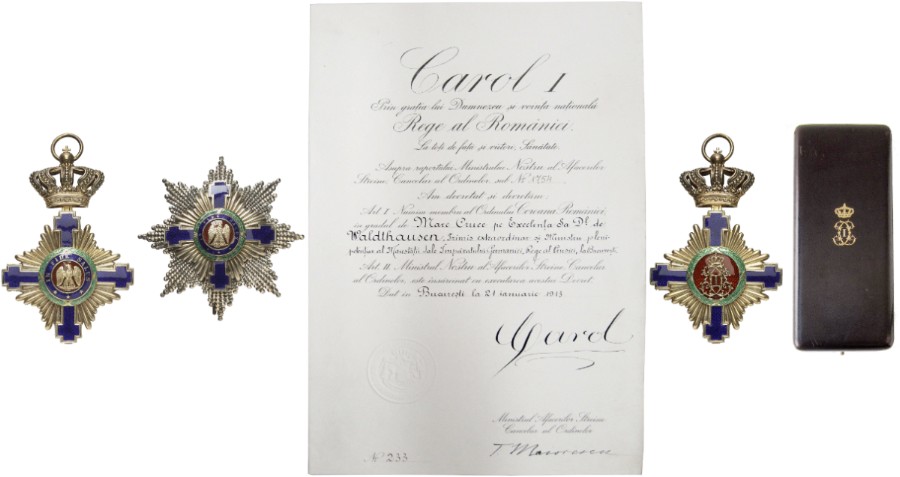 Carol I
Prin graţia lui Dumnezeu şi voinţa naţională
Rege al României.
La toţi de faţă şi viitori, Sănătate.
Asupra raportului Ministrului Nostru al Afacerilor
Străine, Cancelar al Ordinelor, sub Nº 1754.
Am decretat şi decretăm:
Art. I. Numim membru al Ordinului Coroana României,
in gradul de Mare Cruce pe Excelenţa Sa Dl. de
Waldthausen, Trimis extraordinar şi Ministru pleni-
potenţiar al Maiestăţii Sale Impĕratului Germaniei, Rege al Prusiei, la Bucureşti
Art. II. Ministrul Nostru al Afacerilor Străine, Cancelar
al Ordinelor, este însărcinat cu executarea acestui Decret.
Dat in Bucureşti la 21 ianuarie 1913
Carol
Ministrul Afacerilor Străine
Cancelar al Ordinelor
Nº 233